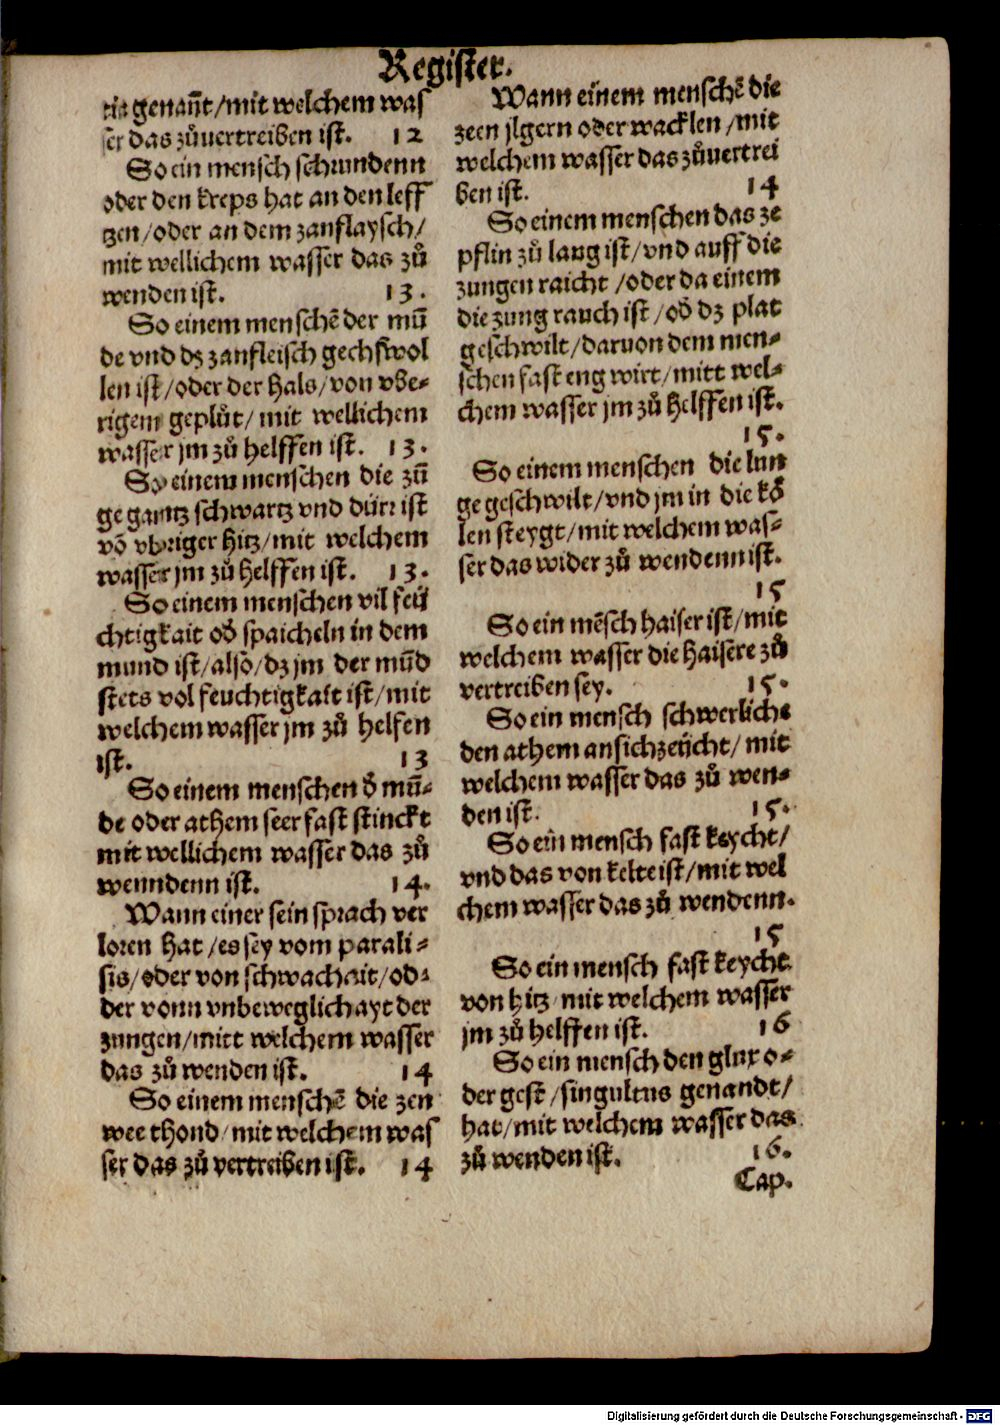 Register.
tia genañt/mit welchem was
ser das zůuertreiben ist. 12
So ein mensch schrundenn
oder den kreps hat an den leff
tzen/oder an dem zanflaysch/
mit wellichem wasser das zů
wenden ist. 13.
So einem menschẽ der mũ
de vnd dz zanfleisch gechswol
len ist/oder der hals/von vbe-
rigem geplůt/mit wellichem
wasser jm zů helffen ist. 13.
So einem menschen die zũ
ge gantz schwartz vnd dürr ist
võ vbriger hitz/mit welchem
wasser jm zů helffen ist. 13.
So einem menschen vil feü
chtigkait oð spaicheln in dem
mund ist/also/dz jm der mũd
stets vol feuchtigkait ist/mit
welchem wasser jm zů helfen
ist. 13
So einem menschen ð mũ-
de oder athem seer fast stinckt
mit wellichem wasser das zů
wenndenn ist. 14.
Wann einer sein sprach ver
loren hat/es sey vom parali-
sis/oder von schwachait/od-
der vonn vnbeweglichayt der
zungen/mitt welchem wasser
das zů wenden ist. 14
So einem menschẽ die zen
wee thond/mit welchem was
ser das zů vertreiben ist. 14
Wann einem menschẽ die
zeen jlgern oder wacklen/mit
welchem wasser das zůuertrei
ben ist. 14
So einem menschen das ze
pflin zů lang ist/vnd auff die
zungen raicht/oder da einem
die zung rauch ist/oð dz plat
geschwilt/daruon dem men-
schen fast eng wirt/mitt wel-
chem wasser jm zů helffen ist.
15.
So einem menschen die lun
ge geschwilt/vnd jm in die kö
len steygt/mit welchem was-
ser das wider zů wendenn ist.
15
So ein mẽsch haiser ist/mit
welchem wasser die haisere zů
vertreiben sey. 15.
So ein mensch schwerliche
den athem an sich zeücht/mit
welchem wasser das zů wen-
den ist. 15.
So ein mensch fast keycht/
vnd das von kelte ist/mit wel
chem wasser das zů wendenn.
15
So ein mensch fast keycht
von hitz mit welchem wasser
jm zů helffen ist. 16
So ein mensch den glux o-
der gest/singultus genandt/
hat/mit welchem wasser das
zů wenden ist. 16.
Cap.
Digitalisierung gefördert durch die Deutsche Forschungsgemeinschaft - DFG